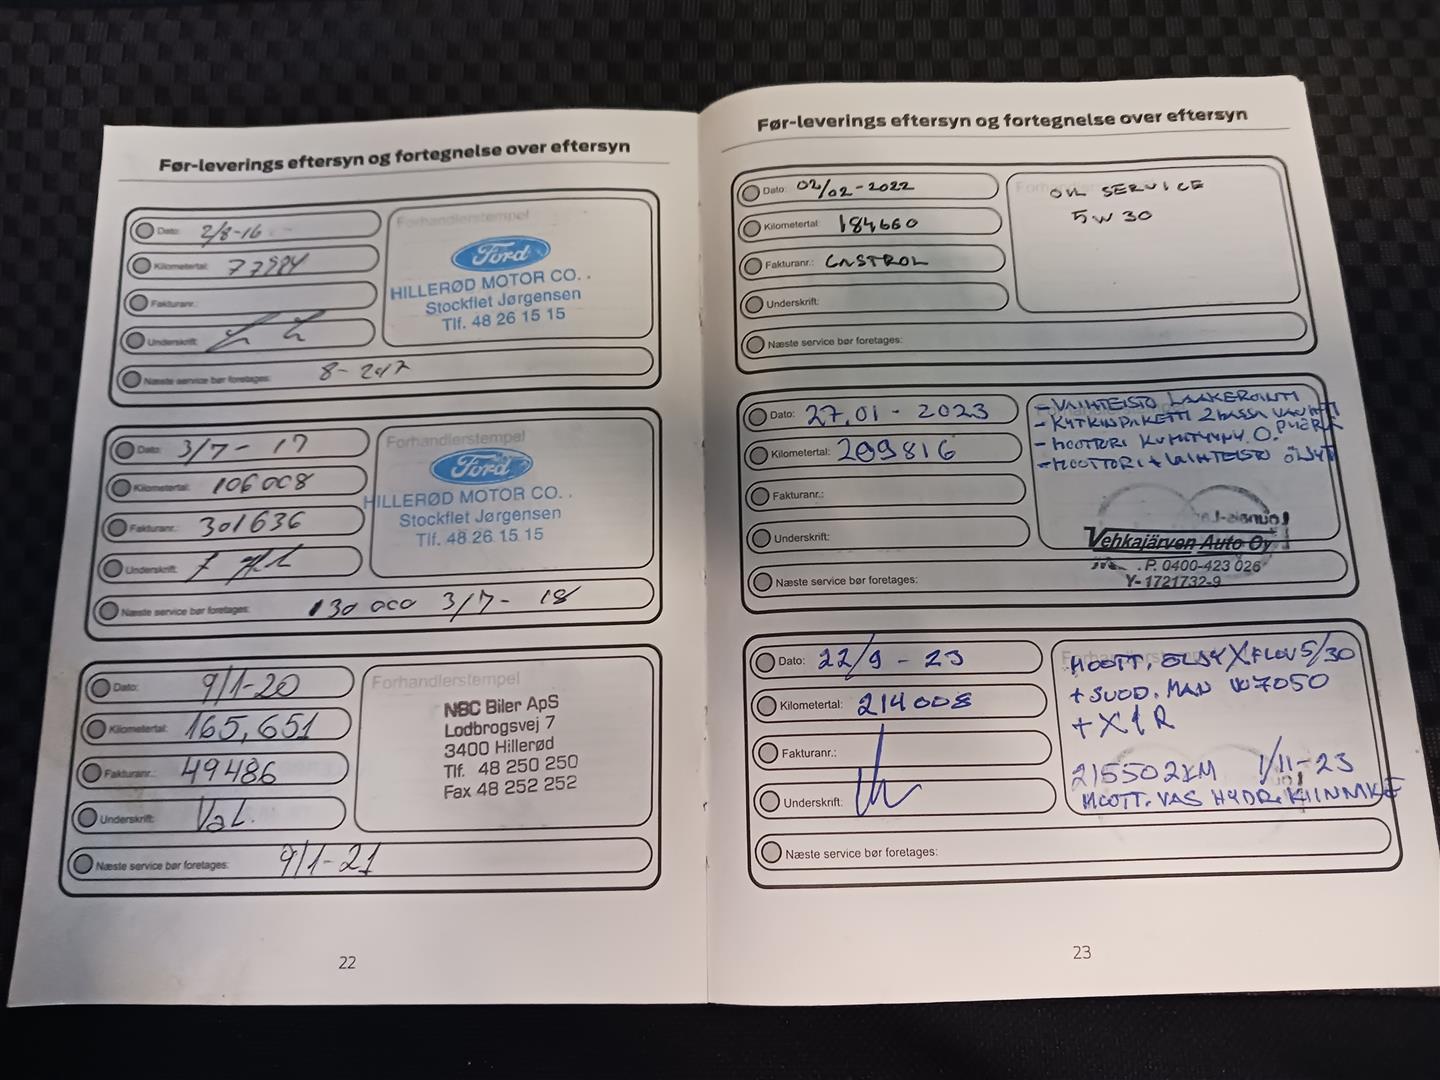 Før-leverings eftersyn og fortegnelse over eftersyn
Dato: 2/8-16
Kilometertal: 77984
Fakturanr.:
Underskrift:
Næste service bør foretages: 8-2017
Forhandlerstempel
Ford
HILLERØD MOTOR CO.
Stockflet Jørgensen
Tlf. 48 26 15 15
Dato: 3/7-17
Kilometertal: 106008
Fakturanr.: 301636
Underskrift:
Næste service bør foretages: 130 000 3/7-18
Forhandlerstempel
Ford
HILLERØD MOTOR CO.
Stockflet Jørgensen
Tlf. 48 26 15 15
Dato: 9/1-20
Kilometertal: 165,651
Fakturanr.: 49486
Underskrift:
Næste service bør foretages: 9/1-21
Forhandlerstempel
NBC Biler ApS
Lodbrogsvej 7
3400 Hillerød
Tlf. 48 250 250
Fax 48 252 252
22
Før-leverings eftersyn og fortegnelse over eftersyn
Dato: 02/02-2022
Kilometertal: 184660
Fakturanr.: CASTROL
Underskrift:
Næste service bør foretages:
OIL SERVICE
5W30
Dato: 27.01-2023
Kilometertal: 209816
Fakturanr.:
Underskrift:
Næste service bør foretages:
- VAIHTEISTO LAAKEROINTI
- KYTKINPAKETTI 2 MASSA VAUHTI
PYÖRÄ
- MOOTTORI KUMITYYNY O.
- MOOTTORI + VAIHTEISTO ÖLJYT
Vehkajärven Auto Oy
P. 0400-423 026
Y-1721732-9
Dato: 22/9-23
Kilometertal: 214008
Fakturanr.:
Underskrift:
Næste service bør foretages:
MOOTT. ÖLJY X FLOW 5/30
+ SUOD. MAN W7050
+ X1R
215502KM 1/11-23
MOOTT. VAS HYDR. KIINNIKE
23